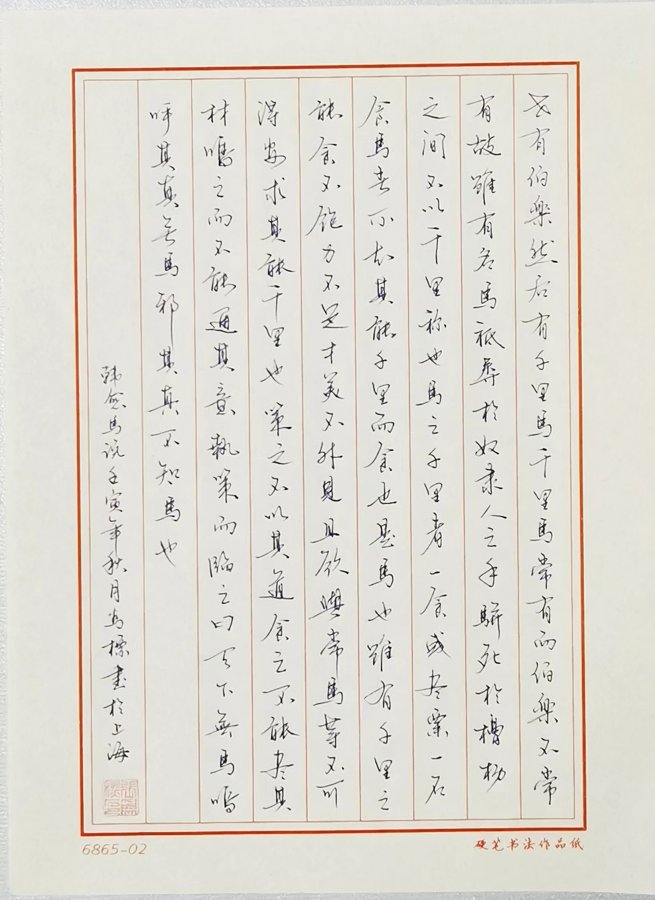 世有伯樂然后有千里馬千里馬常有而伯樂不常
有故雖有名馬祗辱於奴隶人之手駢死於槽枥
之间不以千里称也馬之千里者一食或尽粟一石
食馬者不知其能千里而食也是馬也雖有千里之
能食不飽力不足才美不外見且欲與常馬等不可
得安求其能千里也策之不以其道食之不能尽其
材鳴之而不能通其意執策而臨之曰天下無馬嗚
呼其真无馬邪其真不知馬也
韩愈馬说壬寅年秋月標書於上海
6865-02
硬笔书法作品纸